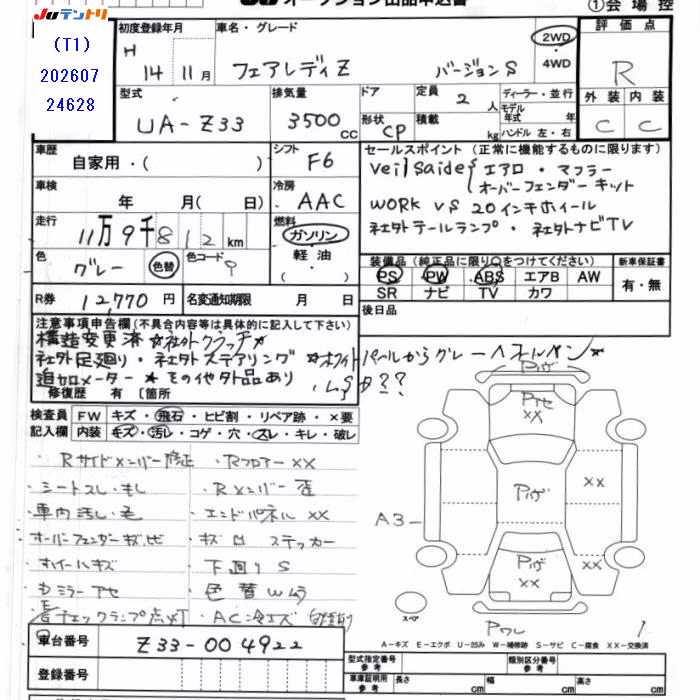 JUテントリ
オークション出品申込書
①会場控
(T1)
202607
24628
初度登録年月
H 14年 11月
車名・グレード
フェアレディZ バージョンS
2WD
・
4WD
評価点
R
外装 内装
C C
型式
UA-Z33
排気量
3500cc
ドア
形状 CP
定員 2人
積載 kg
ディーラー・並行
モデル年式 年式
ハンドル 左・右
車歴
自家用・( )
シフト
F6
セールスポイント (正常に機能するものに限ります)
Veilsaide エアロ・マフラー
オーバーフェンダーキット
WORK VS 20インチホイール
社外テールランプ・社外ナビTV
車検
年 月( 日)
冷房
AAC
走行
11万9千812km
燃料
ガソリン
・
軽油
色
グレー 色替
色コード
?
装備品 (純正品に限り○をつけてください)
PS PW ABS エアB AW
SR ナビ TV カワ
新車保証書
有・無
R券 12,770円
名変通知期限 月 日
後日品
注意事項申告欄 (不具合内容等は具体的に記入して下さい)
構造変更済 ☆社外クラッチ☆
社外足廻り・社外ステアリング ☆ホワイトパールからグレーへオールペン☆
追加メーター ★その他外品あり
修復歴 有 〔箇所
検査員 FW キズ・飛石・ヒビ割・リペア跡・×要
記入欄 内装 キズ・汚レ・コゲ・穴・スレ・キレ・破レ
・Rサイドメンバー修正 ・Rフロアー××
・シートスレ・もし ・Rメンバー歪
・車内汚し・毛 ・エンドパネル××
オーバーフェンダーキズ・ヒビ ・キズ ロ ステッカー
・ホイールキズ ・下廻りS
・Dミラーアセ ・色替Wムラ
チェックランプ点灯 ・AC冷エズ
車台番号 Z33-004922
登録番号
Pハゲ
Pアセ
××
Pハゲ
××
××
Pハゲ
××
A3
Pワレ
スペア
A-キズ E-エクボ U-凹み W-補修跡 S-サビ C-腐食 XX-交換済
型式指定番号 参考
類別区分番号 参考
車庫証明用 参考
長さ cm 幅 cm 高さ cm